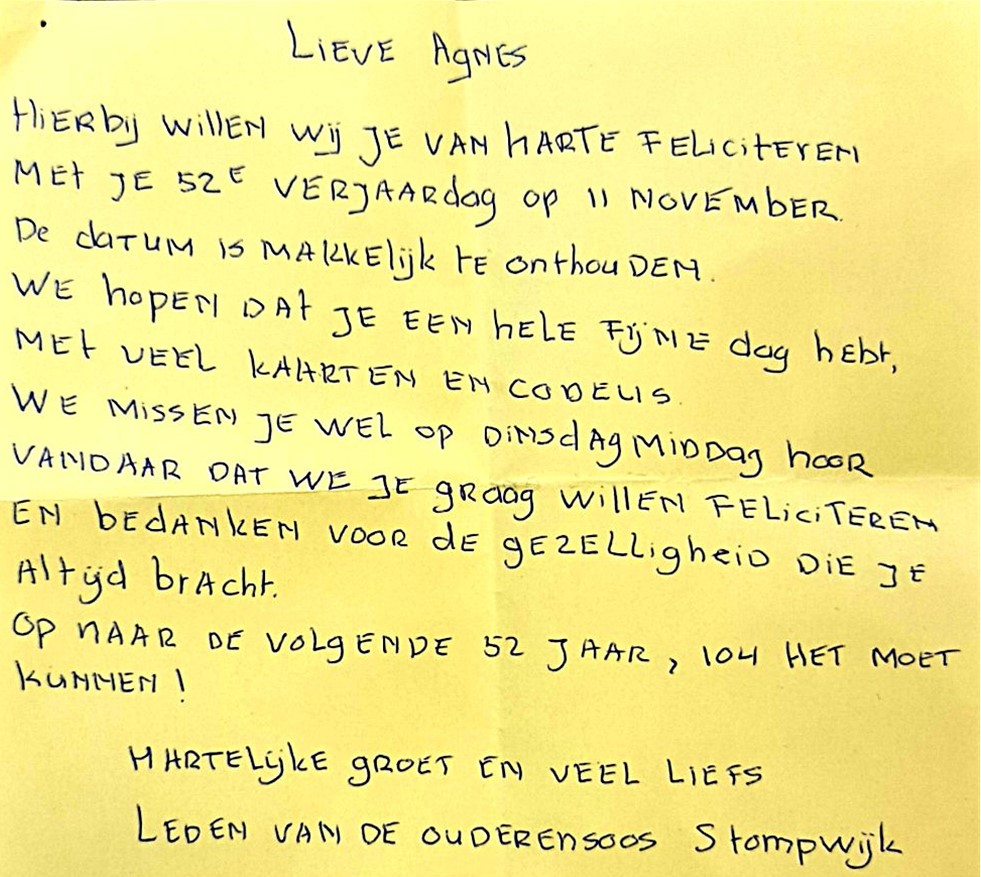 Lieve Agnes
Hierbij willen wij je van harte feliciteren
met je 52e verjaardag op 11 november.
De datum is makkelijk te onthouden.
We hopen dat je een hele fijne dag hebt,
met veel kaarten en codeus.
We missen je wel op dinsdagmiddag hoor
vandaar dat we je graag willen feliciteren
en bedanken voor de gezelligheid die je
altijd bracht.
Op naar de volgende 52 jaar, 104 het moet
kunnen!
Hartelijke groet en veel liefs
Leden van de ouderensoos Stompwijk